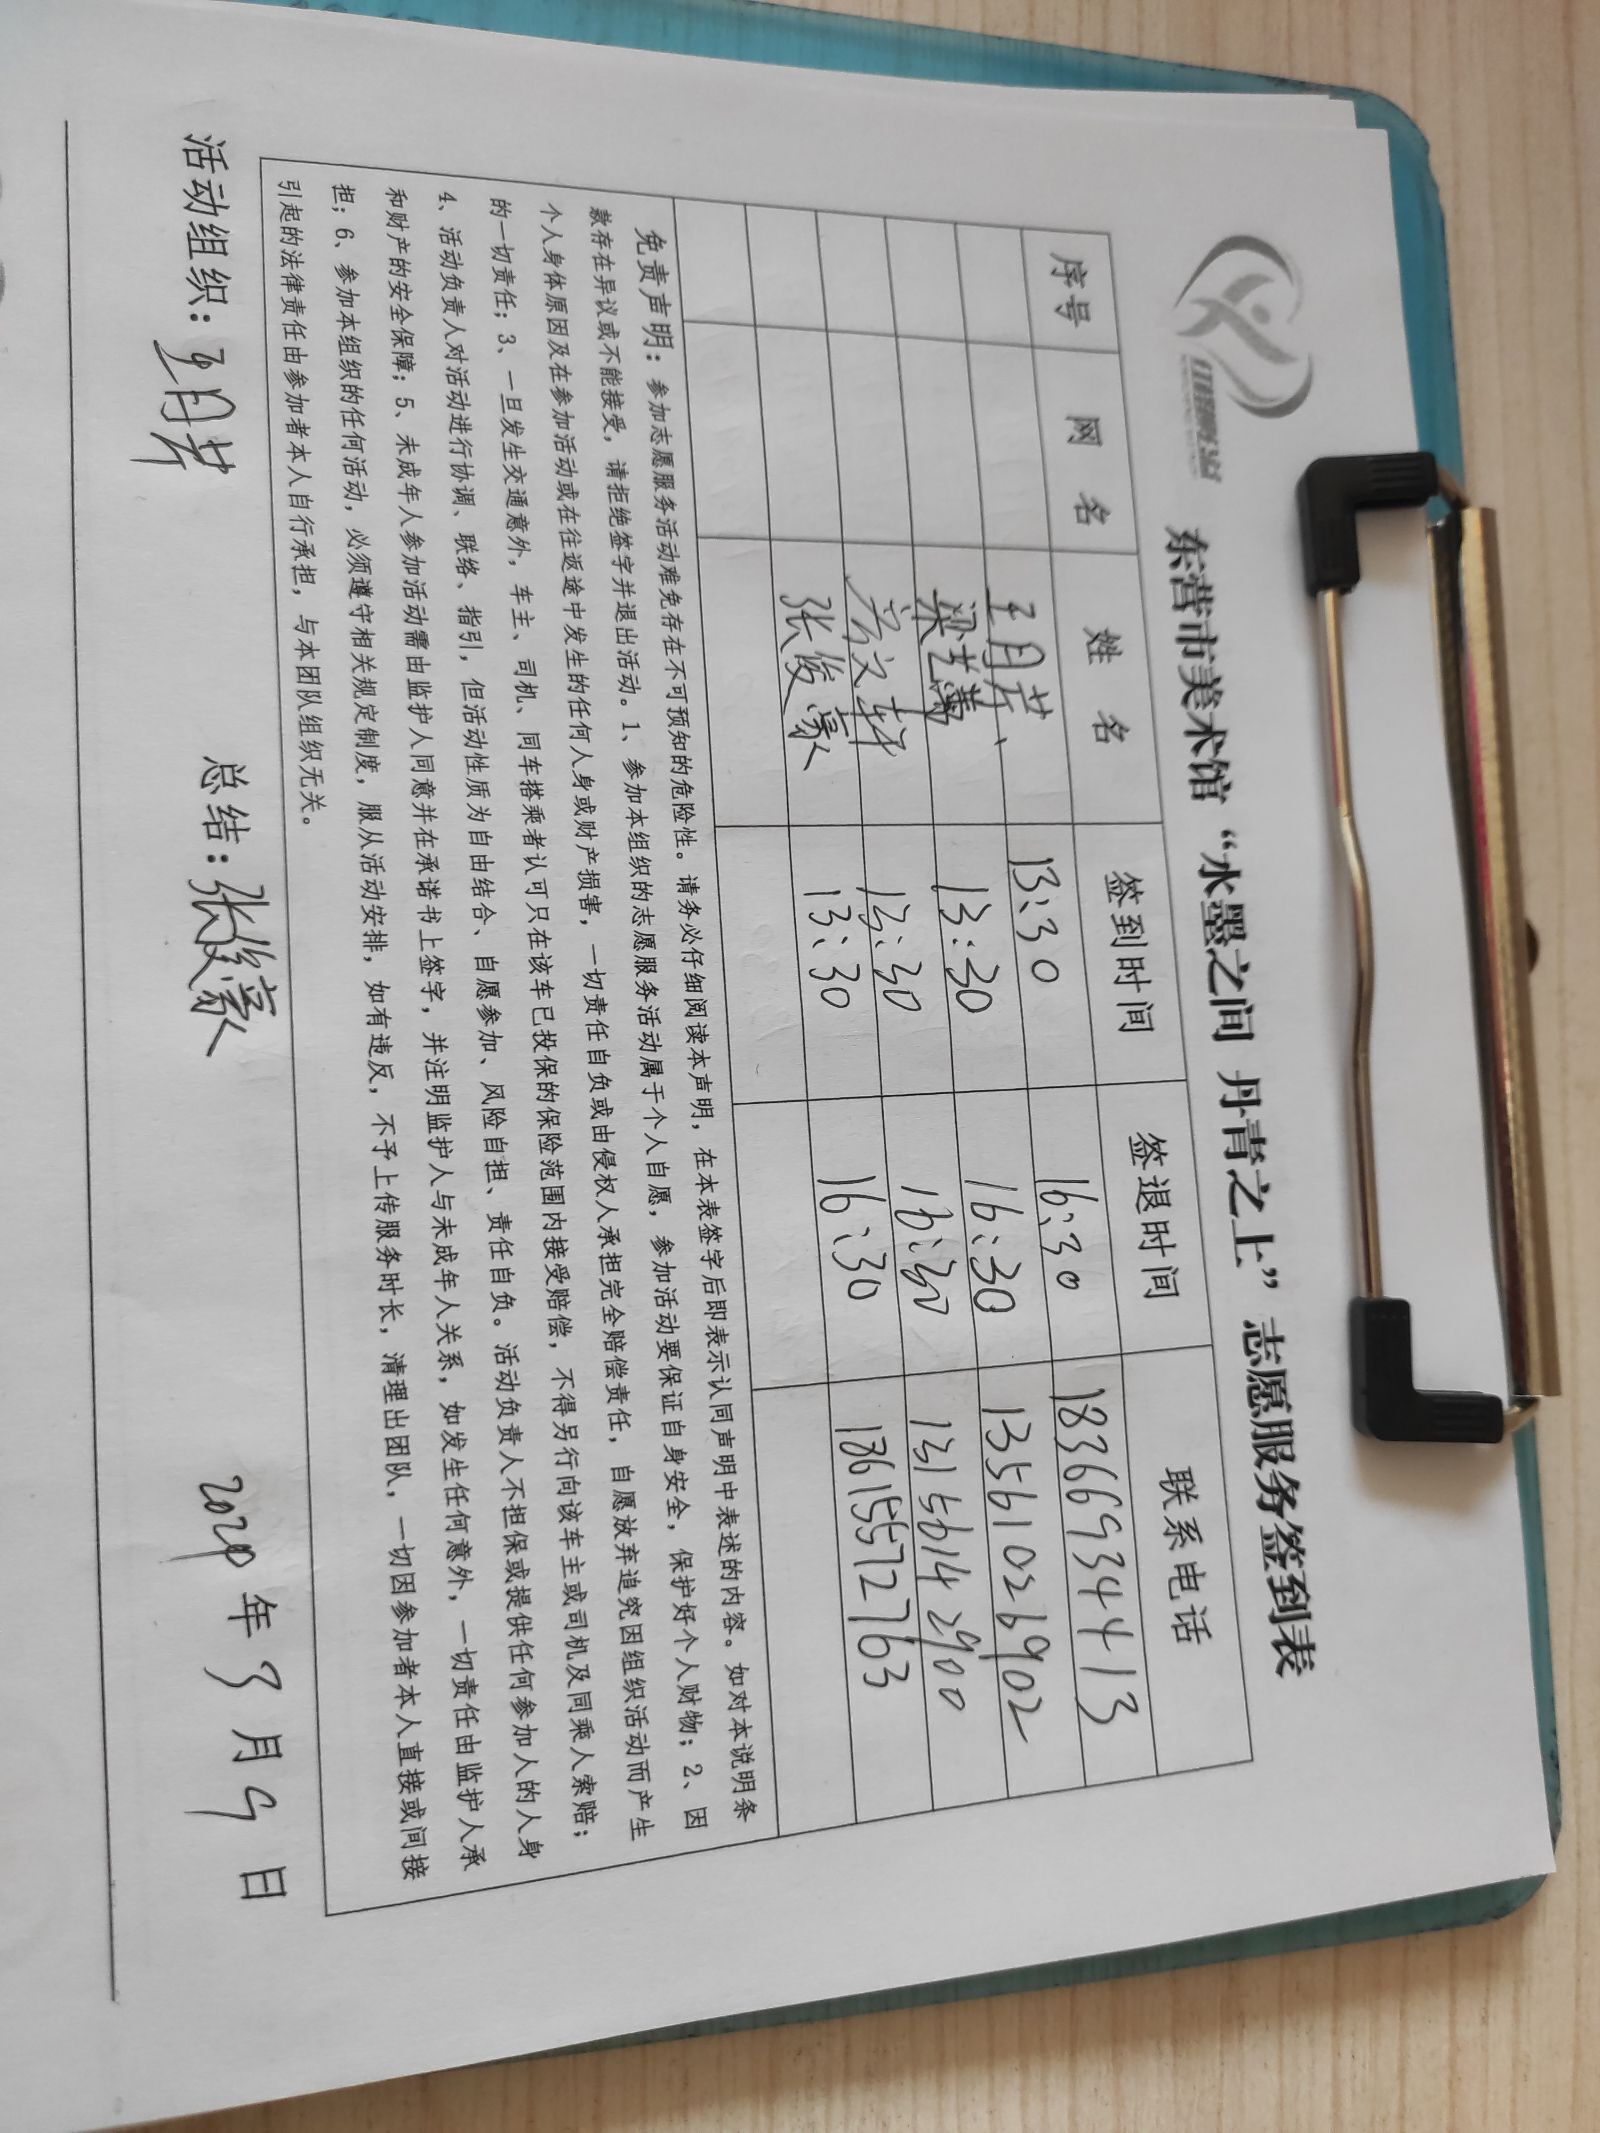 东营市美术馆 “水墨之间 丹青之上” 志愿服务签到表
序号 网 名 姓 名 签到时间 签退时间 联系电话
13:30 16:30 18366934413
13:30 16:30 13561026902
13:30 16:30 13156142900
张俊豪 13:30 16:30 18615572763
免责声明：参加志愿服务活动难免存在不可预知的危险性。请务必仔细阅读本声明，在本表签字后即表示认同声明中表述的内容。如对本说明条
款存在异议或不能接受，请拒绝签字并退出活动。1、参加本组织的志愿服务活动属于个人自愿，参加活动要保证自身安全，保护好个人财物；2、因
个人身体原因及在参加活动或在往返途中发生的任何人身或财产损害，一切责任自负或由侵权人承担完全赔偿责任，自愿放弃追究因组织活动而产生
的一切责任；3、一旦发生交通意外，车主、司机、同车搭乘者认可只在该车已投保的保险范围内接受赔偿，不得另行向该车主或司机及同乘人索赔；
4、活动负责人对活动进行协调、联络、指引，但活动性质为自由结合、自愿参加、风险自担、责任自负。活动负责人不担保或提供任何参加人的人身
和财产的安全保障；5、未成年人参加活动需由监护人同意并在承诺书上签字，并注明监护人与未成年人关系，如发生任何意外，一切责任由监护人承
担；6、参加本组织的任何活动，必须遵守相关规定制度，服从活动安排，如有违反，不予上传服务时长，清理出团队，一切因参加者本人直接或间接
引起的法律责任由参加者本人自行承担，与本团队组织无关。
活动组织： 总结：张俊豪 年 月 9 日